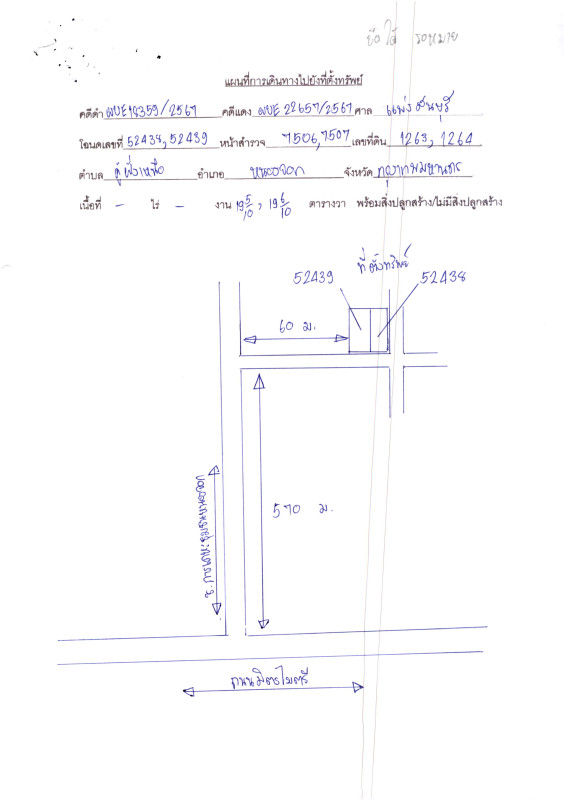 ยึดได้ รอหมาย
แผนที่การเดินทางไปยังที่ตั้งทรัพย์
คดีดำ ผบE18359/2567 คดีแดง ผบE 22657/2567 ศาล แพ่งธนบุรี
โฉนดเลขที่ 52438, 52439 หน้าสำรวจ 7506, 7507 เลขที่ดิน 1263, 1264
ตำบล คู้ฝั่งเหนือ อำเภอ หนองจอก จังหวัด กรุงเทพมหานคร
เนื้อที่ - ไร่ - งาน 19 5/10, 19 6/10 ตารางวา พร้อมสิ่งปลูกสร้าง/ไม่มีสิ่งปลูกสร้าง
ที่ตั้งทรัพย์
52439 52438
60 ม.
570 ม.
ซ. การเคหะชุมชนหนองจอก
ถนนมิตรไมตรี